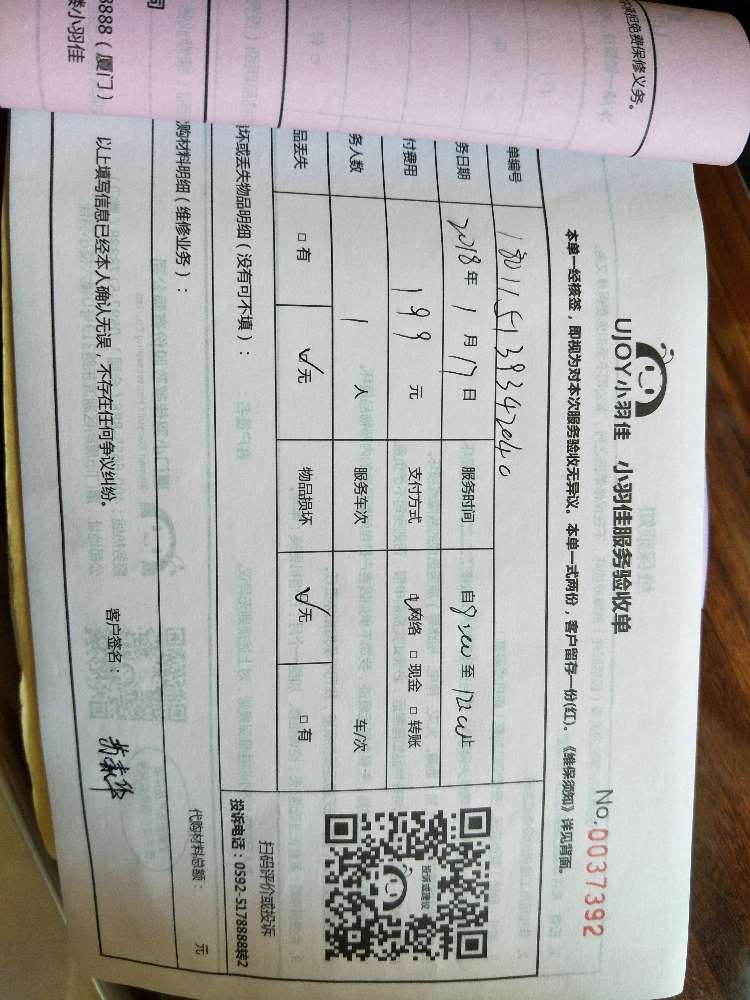 UJOY小羽佳 小羽佳服务验收单
No.0037392
本单一经核签，即视为对本次服务验收无异议。本单一式两份，客户留存一份(红)。《维保须知》详见背面。
单编号 180115139342040
务日期 2018年1月17日 服务时间 自 至 止
付费用 199元 支付方式 ☑网络 □现金 □转账
务人数 1人 服务车次 车/次
品丢失 □有 ☑无 物品损坏 ☑无 □有
坏或丢失物品明细（没有可不填）：
投诉或建议
扫码评价或投诉
投诉电话：0592-5178888转2
购材料明细（维修业务）：
代购材料总额： 元
以上填写信息已经本人确认无误，不存在任何争议纠纷。
客户签名：
免费保修义务。
8888（厦门）
楼小羽佳
司